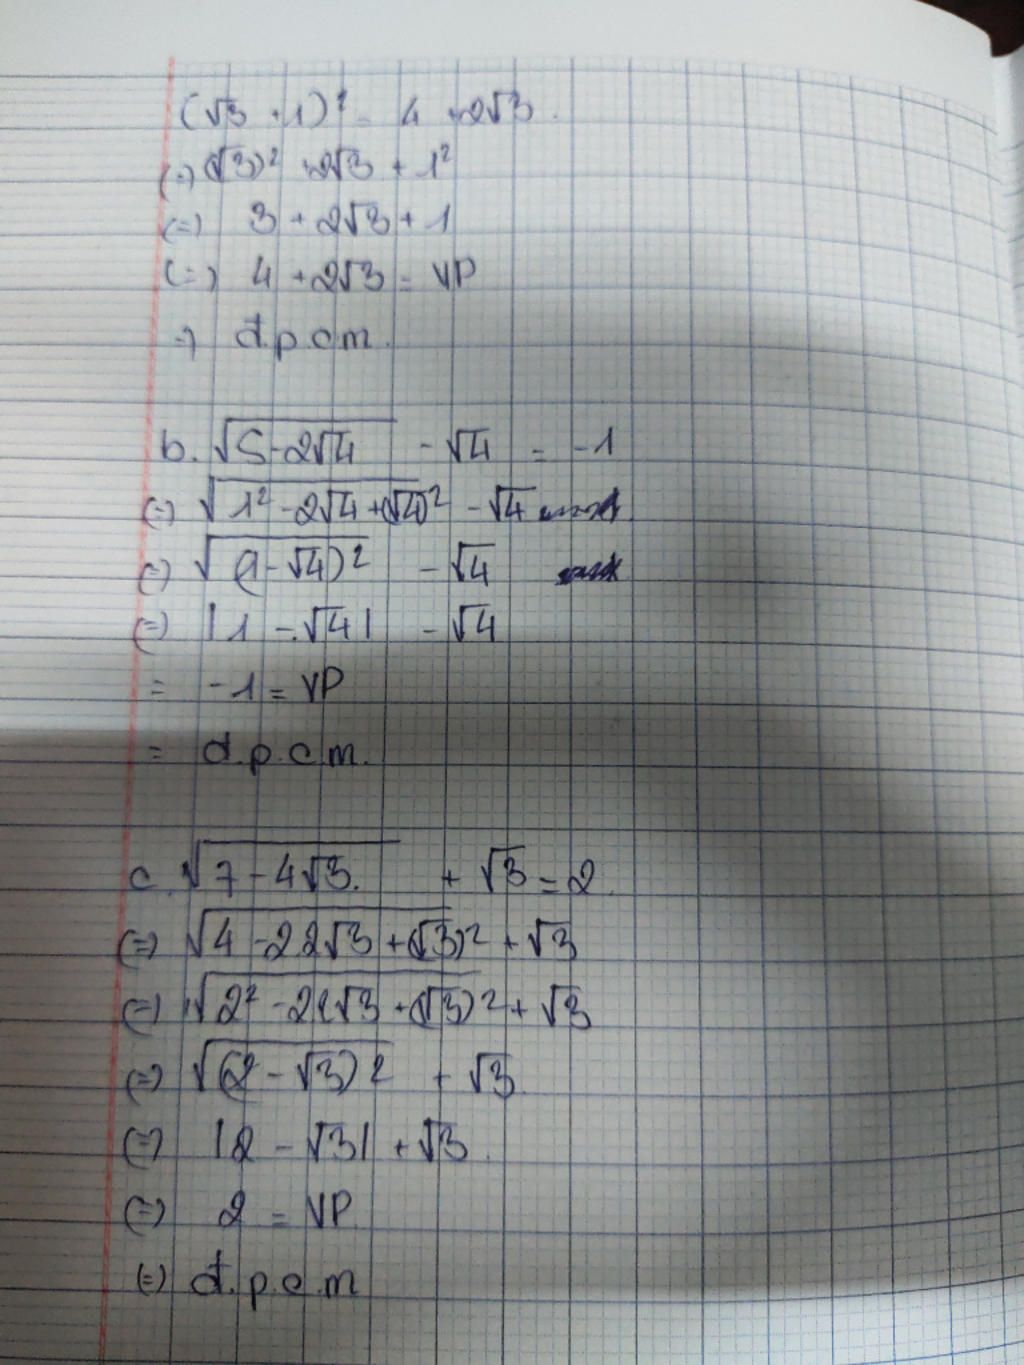 (√3 + 1)² = 4 + 2√3.
(=) (√3)² + 2√3 + 1²
(=) 3 + 2√3 + 1
(=) 4 + 2√3 = VP
=) đ.p.c.m.
b. √(5 - 2√4) - √4 = -1
(=) √(1² - 2√4 + (√4)²) - √4
(=) √((1 - √4)²) - √4
(=) |1 - √4| - √4
= -1 = VP
= đ.p.c.m.
c. √(7 - 4√3.) + √3 = 2.
(=) √(4 - 2 2√3 + (√3)²) + √3
(=) √(2² - 2 2√3 + (√3)²) + √3
(=) √((2 - √3)²) + √3.
(=) |2 - √3| + √3.
(=) 2 = VP.
(=) đ.p.c.m